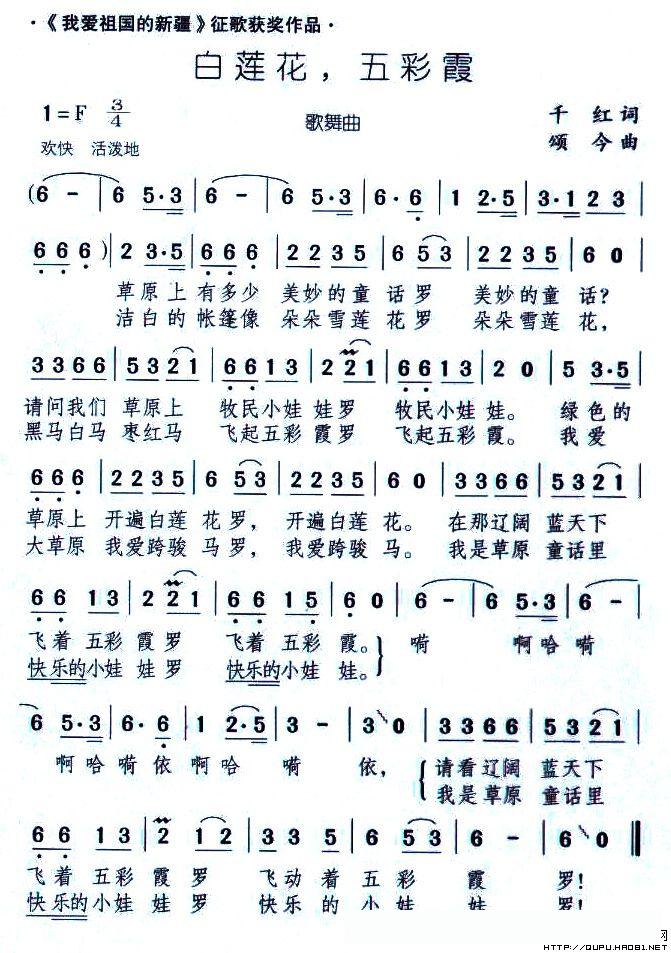 ·《我爱祖国的新疆》征歌获奖作品·
白莲花，五彩霞
1=F 3/4
歌舞曲
千红词
欢快 活泼地
颂今曲
(6 - | 6 5·3 | 6 - | 6 5·3 | 6·6 | 1 2·5 | 3·1 2 3 |
6 6 6 ) | 2 3·5 | 6 6 6 | 2 2 3 5 | 6 5 3 | 2 2 3 5 | 6 0 |
草原上 有多少 美妙的童 话罗 美妙的童 话？
洁白的 帐篷像 朵朵雪莲 花罗 朵朵雪莲 花，
3 3 6 6 | 5 3 2 1 | 6 6 1 3 | 2 2 1 | 6 6 1 3 | 2 0 | 5 3·5 |
请问我们 草原上 牧民小娃 娃罗 牧民小娃 娃。 绿色的
黑马白马 枣红马 飞起五彩 霞罗 飞起五彩 霞。 我爱
6 6 6 | 2 2 3 5 | 6 5 3 | 2 2 3 5 | 6 0 | 3 3 6 6 | 5 3 2 1 |
草原上 开遍白莲 花罗， 开遍白莲 花。 在那辽阔 蓝天下
大草原 我爱跨骏 马罗， 我爱跨骏 马。 我是草原 童话里
6 6 1 3 | 2 2 1 | 6 6 1 5 | 6 0 | 6 - | 6 5·3 | 6 - |
飞着 五彩 霞罗 飞着 五彩 霞。 嗬 啊哈嗬
快乐的小娃 娃罗 快乐的小娃 娃。
6 5·3 | 6·6 | 1 2·5 | 3 - | 3 0 | 3 3 6 6 | 5 3 2 1 |
啊哈嗬依啊哈 嗬 依， 请看辽阔 蓝天下
我是草原 童话里
6 6 1 3 | 2 1 2 | 3 3 5 | 6 5 3 | 6 - | 6 0 ‖
飞着 五彩 霞 罗 飞动着 五彩 霞 罗！
快乐的小娃 娃 罗 快乐的 小娃 娃 罗！
HTTP://QUPU.HAO81.NET